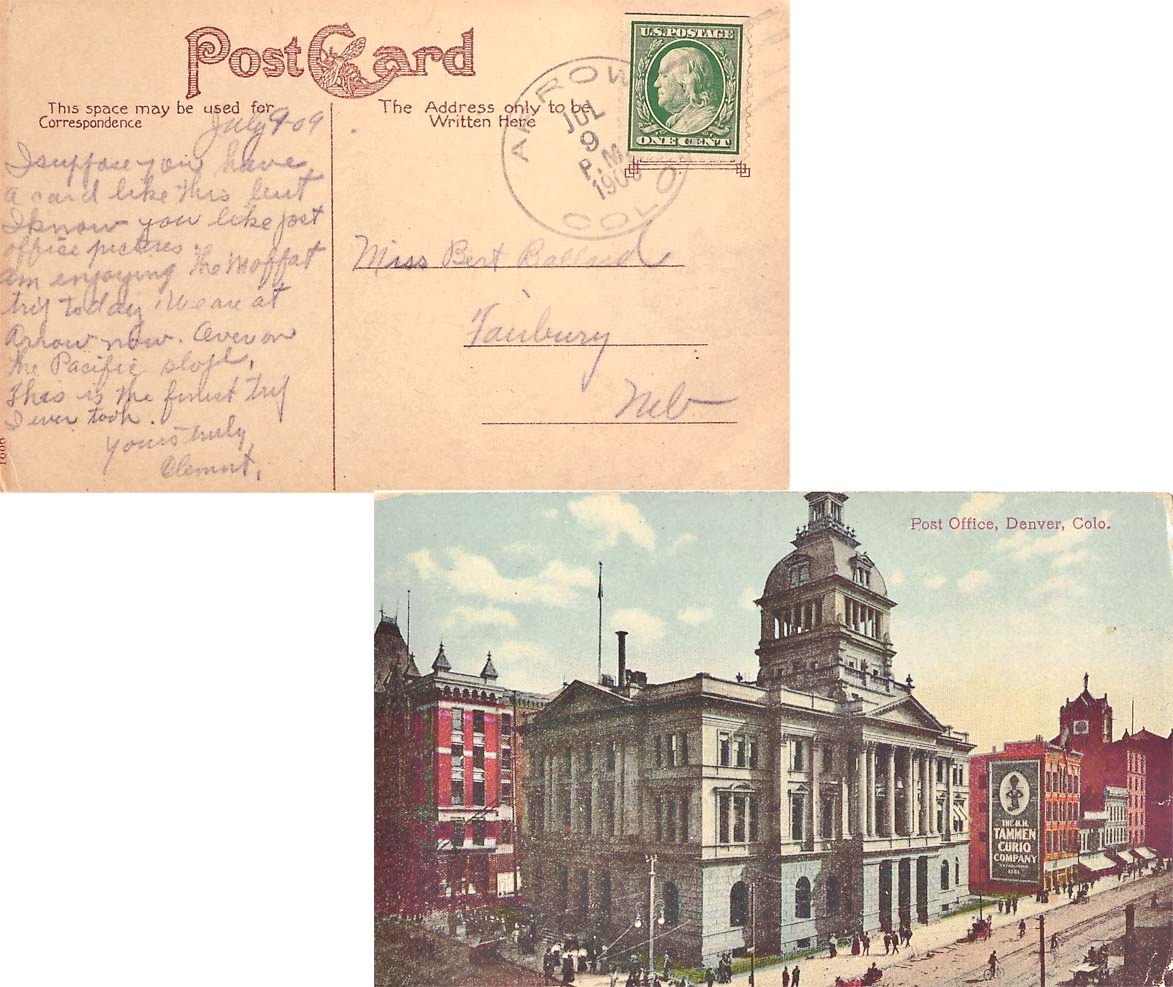 Post Card
This space may be used for
Correspondence
The Address only to be
Written Here
U.S. POSTAGE
ONE CENT
ARROW
JUL
9
P.M.
COLO
July 9-09
I suppose you have
a card like this but
I know you like post
office pictures.
am enjoying the Moffat
trip today. We are at
Arrow now. Over on
the Pacific slope,
This is the finest trip
I ever took.
Yours truly,
Clement,
Miss Bert Ballard
Fairbury
Neb
Post Office, Denver, Colo.
THE H.H.
TAMMEN
CURIO
COMPANY